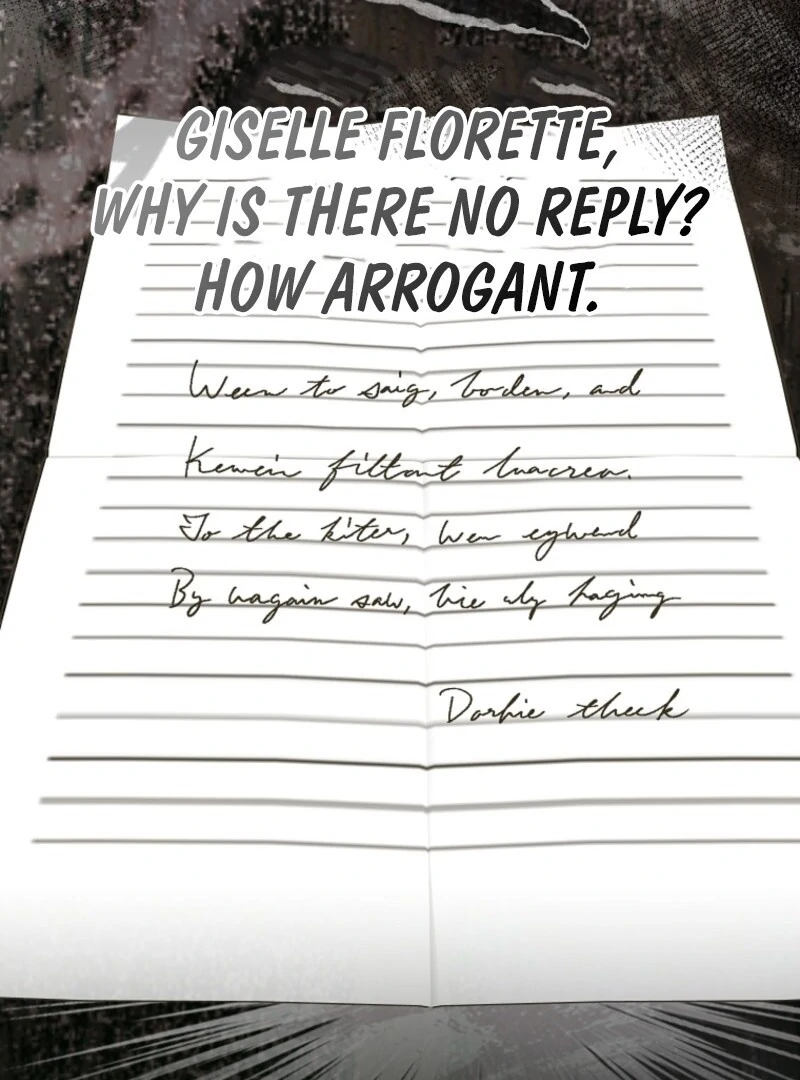 GISELLE FLORETTE,
WHY IS THERE NO REPLY?
HOW ARROGANT.
Ween to saig, boden, and
Kewein filtant
To the kiter, wen eghwend
By vagain saw, hie aly haging
Dorhie theck